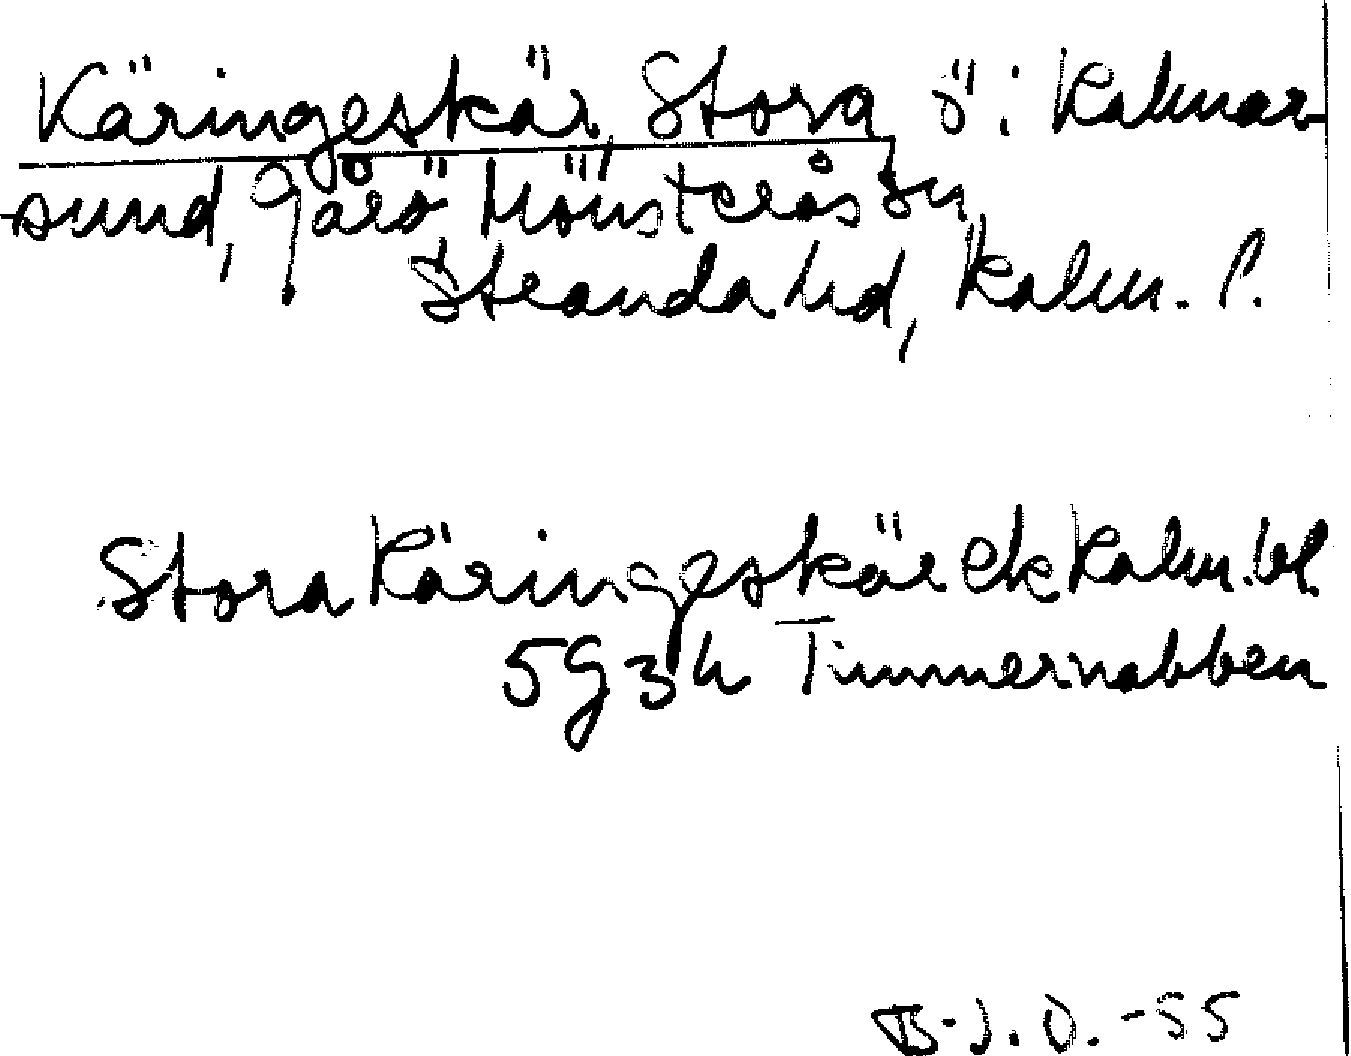 Käringeskär, Stora, ö i Kalmar
sund, Gåsö, Mönsterås sn,
Stranda hd, Kalm. l.
Stora Käringeskär ek Kalm. bl.
5G3h Timmernabben
B-J.O.-55